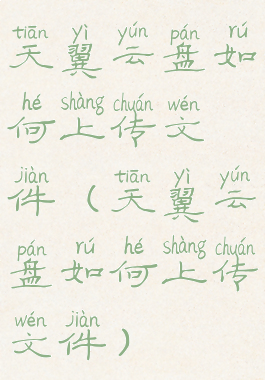 tiān yì yún pán rú
天翼云盘如
hé shàng chuán wén
何上传文
jiàn tiān yì yún
件（天翼云
pán rú hé shàng chuán
盘如何上传
wén jiàn
文件）